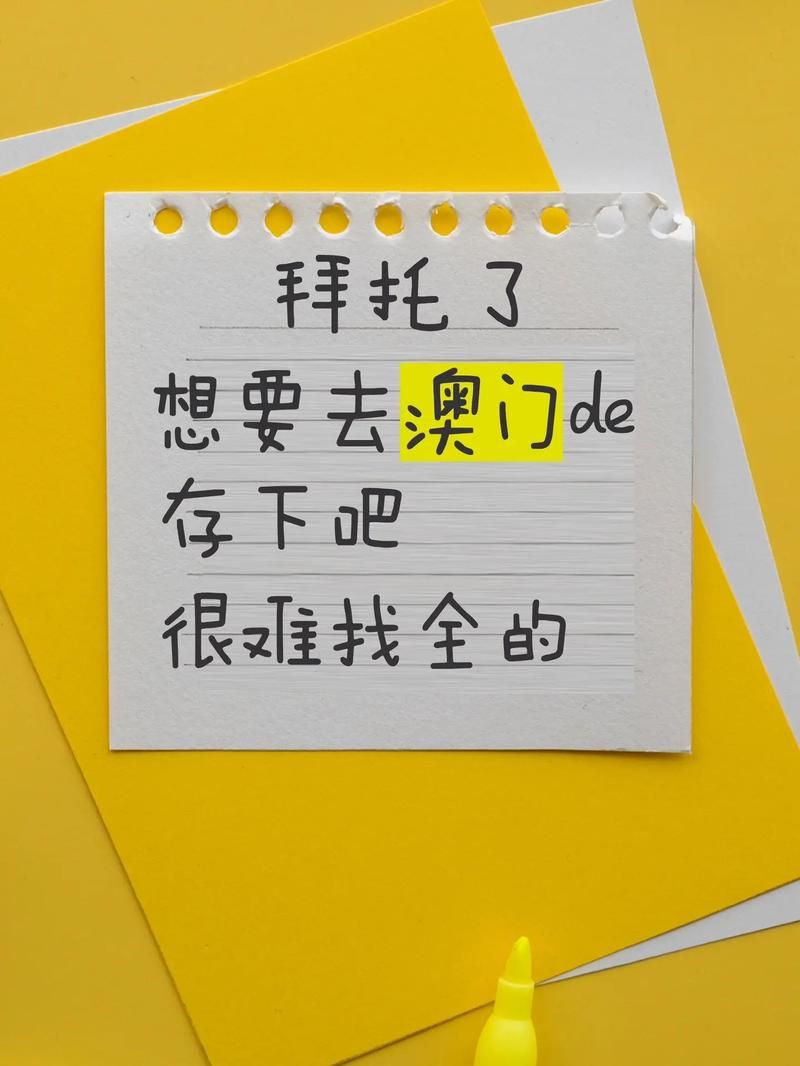 拜托了
想要去澳门de
存下吧
很难找全的